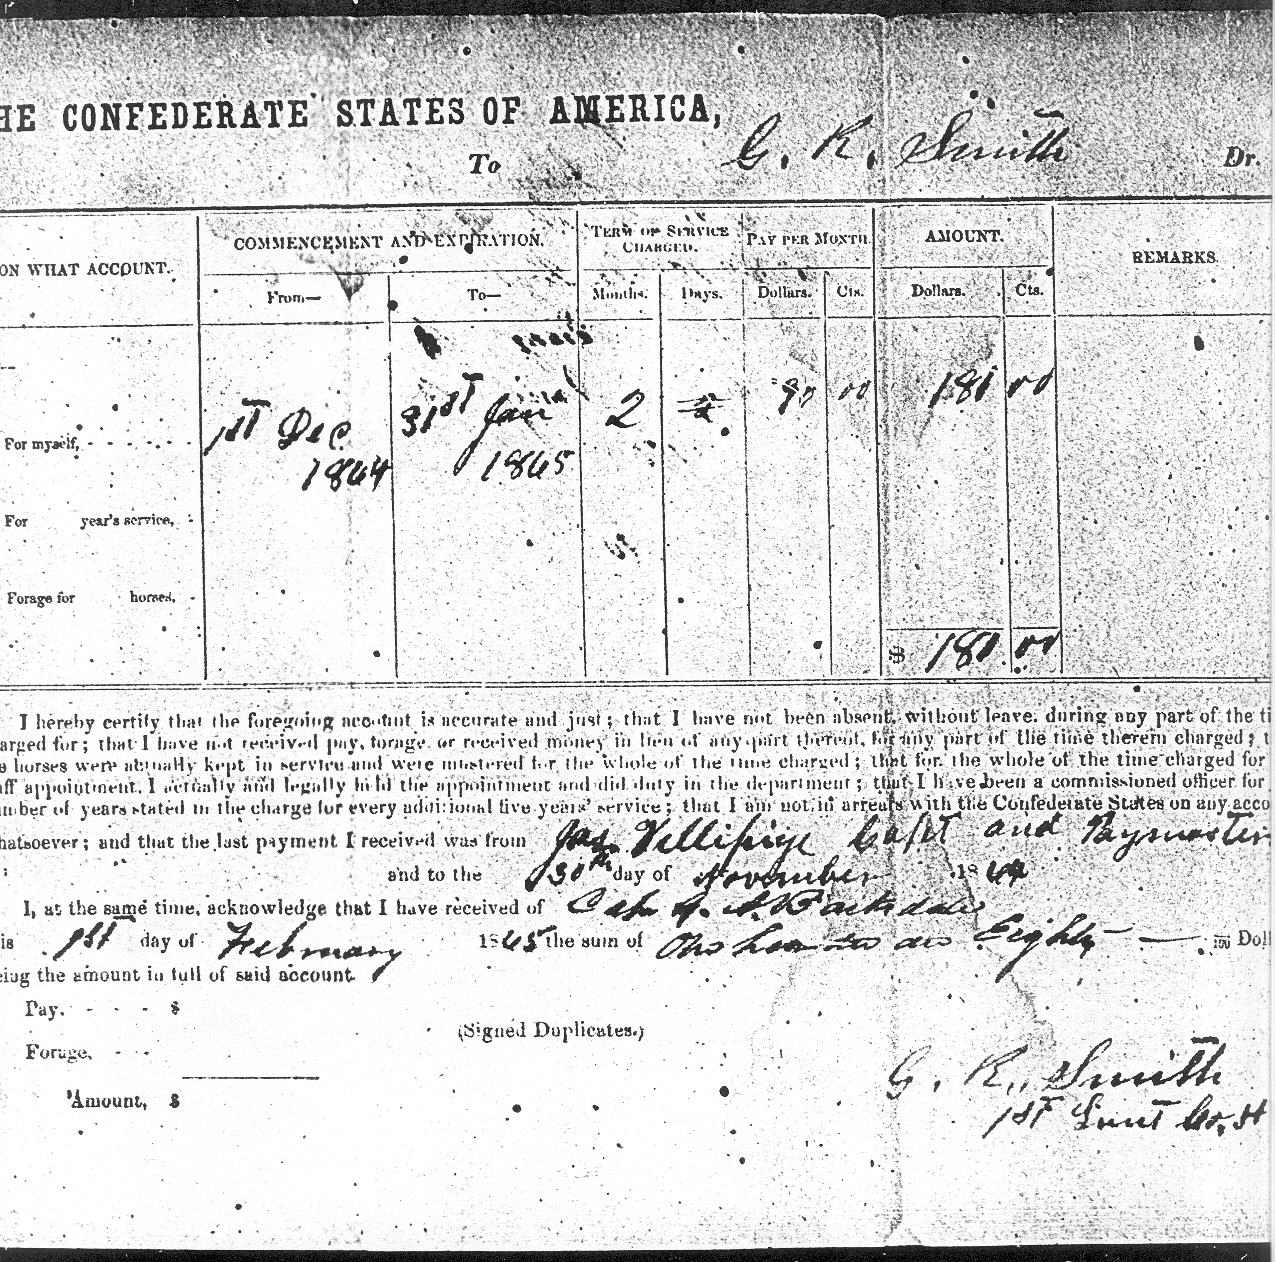 HE CONFEDERATE STATES OF AMERICA,
To G. R. Smith Dr.
ON WHAT ACCOUNT. COMMENCEMENT AND EXPIRATION. TERM OF SERVICE CHARGED. PAY PER MONTH. AMOUNT. REMARKS.
From— To— Months. Days. Dollars. Cts. Dollars. Cts.
For myself, 1st Dec 1864 31st Jan 1865 2 90 00 180 00
For year's service,
Forage for horses,
$ 180 00
I hereby certify that the foregoing account is accurate and just; that I have not been absent, without leave, during any part of the ti
arged for; that I have not received pay, forage, or received money in lieu of any part thereof, for any part of the time therein charged; t
e horses were actually kept in service and were mustered for the whole of the time charged; that for the whole of the time charged for
aff appointment, I actually and legally held the appointment and did duty in the department; that I have been a commissioned officer for
umber of years stated in the charge for every additional five years' service; that I am not in arrears with the Confederate States on any acco
hatsoever; and that the last payment I received was from Jas Villipigue Capt and Paymaster
and to the 30th day of November 1864
I, at the same time, acknowledge that I have received of Capt A. Barksdale
is 1st day of February 1865 the sum of One hundred and Eighty — 100 Doll
eing the amount in full of said account.
Pay, - - - $
(Signed Duplicates.)
Forage, - -
Amount, $
G. R. Smith
1st Lieut Co. H